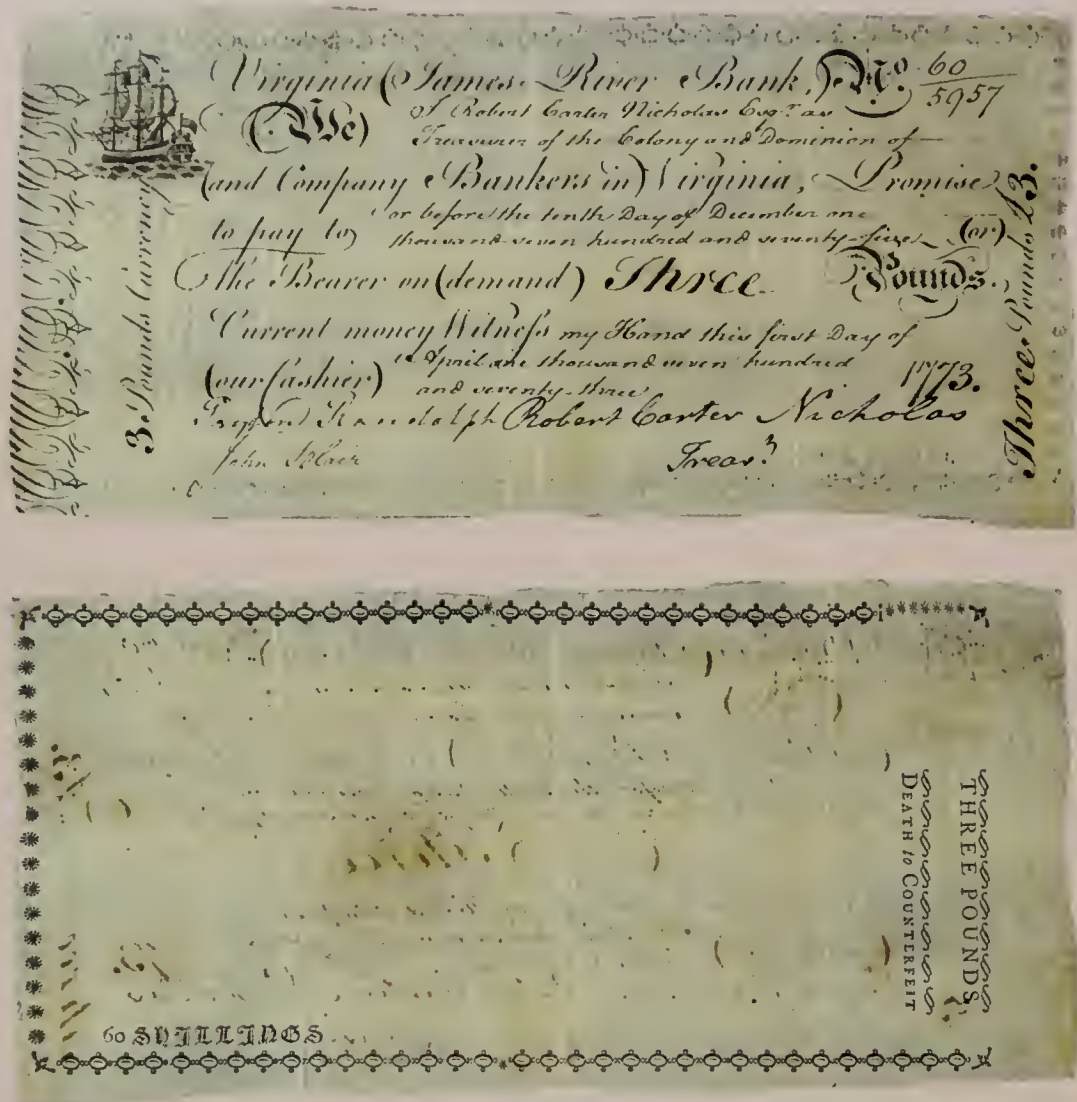 Virginia (James River Bank,) No. 60
5957
(We) I Robert Carter Nicholas Esqr. as
Treasurer of the Colony and Dominion of —
(and Company Bankers in) Virginia, Promise
to pay to) or before the tenth Day of December one
thousand seven hundred and seventy-five (or)
the Bearer on (demand) Three Pounds.
Current money Witness my Hand this first Day of
(our Cashier) April one thousand seven hundred
and seventy-three 1773.
Randolph Robert Carter Nicholas
John Blair Trear.
3 Pounds Currency
Three Pounds £3.
THREE POUNDS
DEATH to COUNTERFEIT
60 SHILLINGS